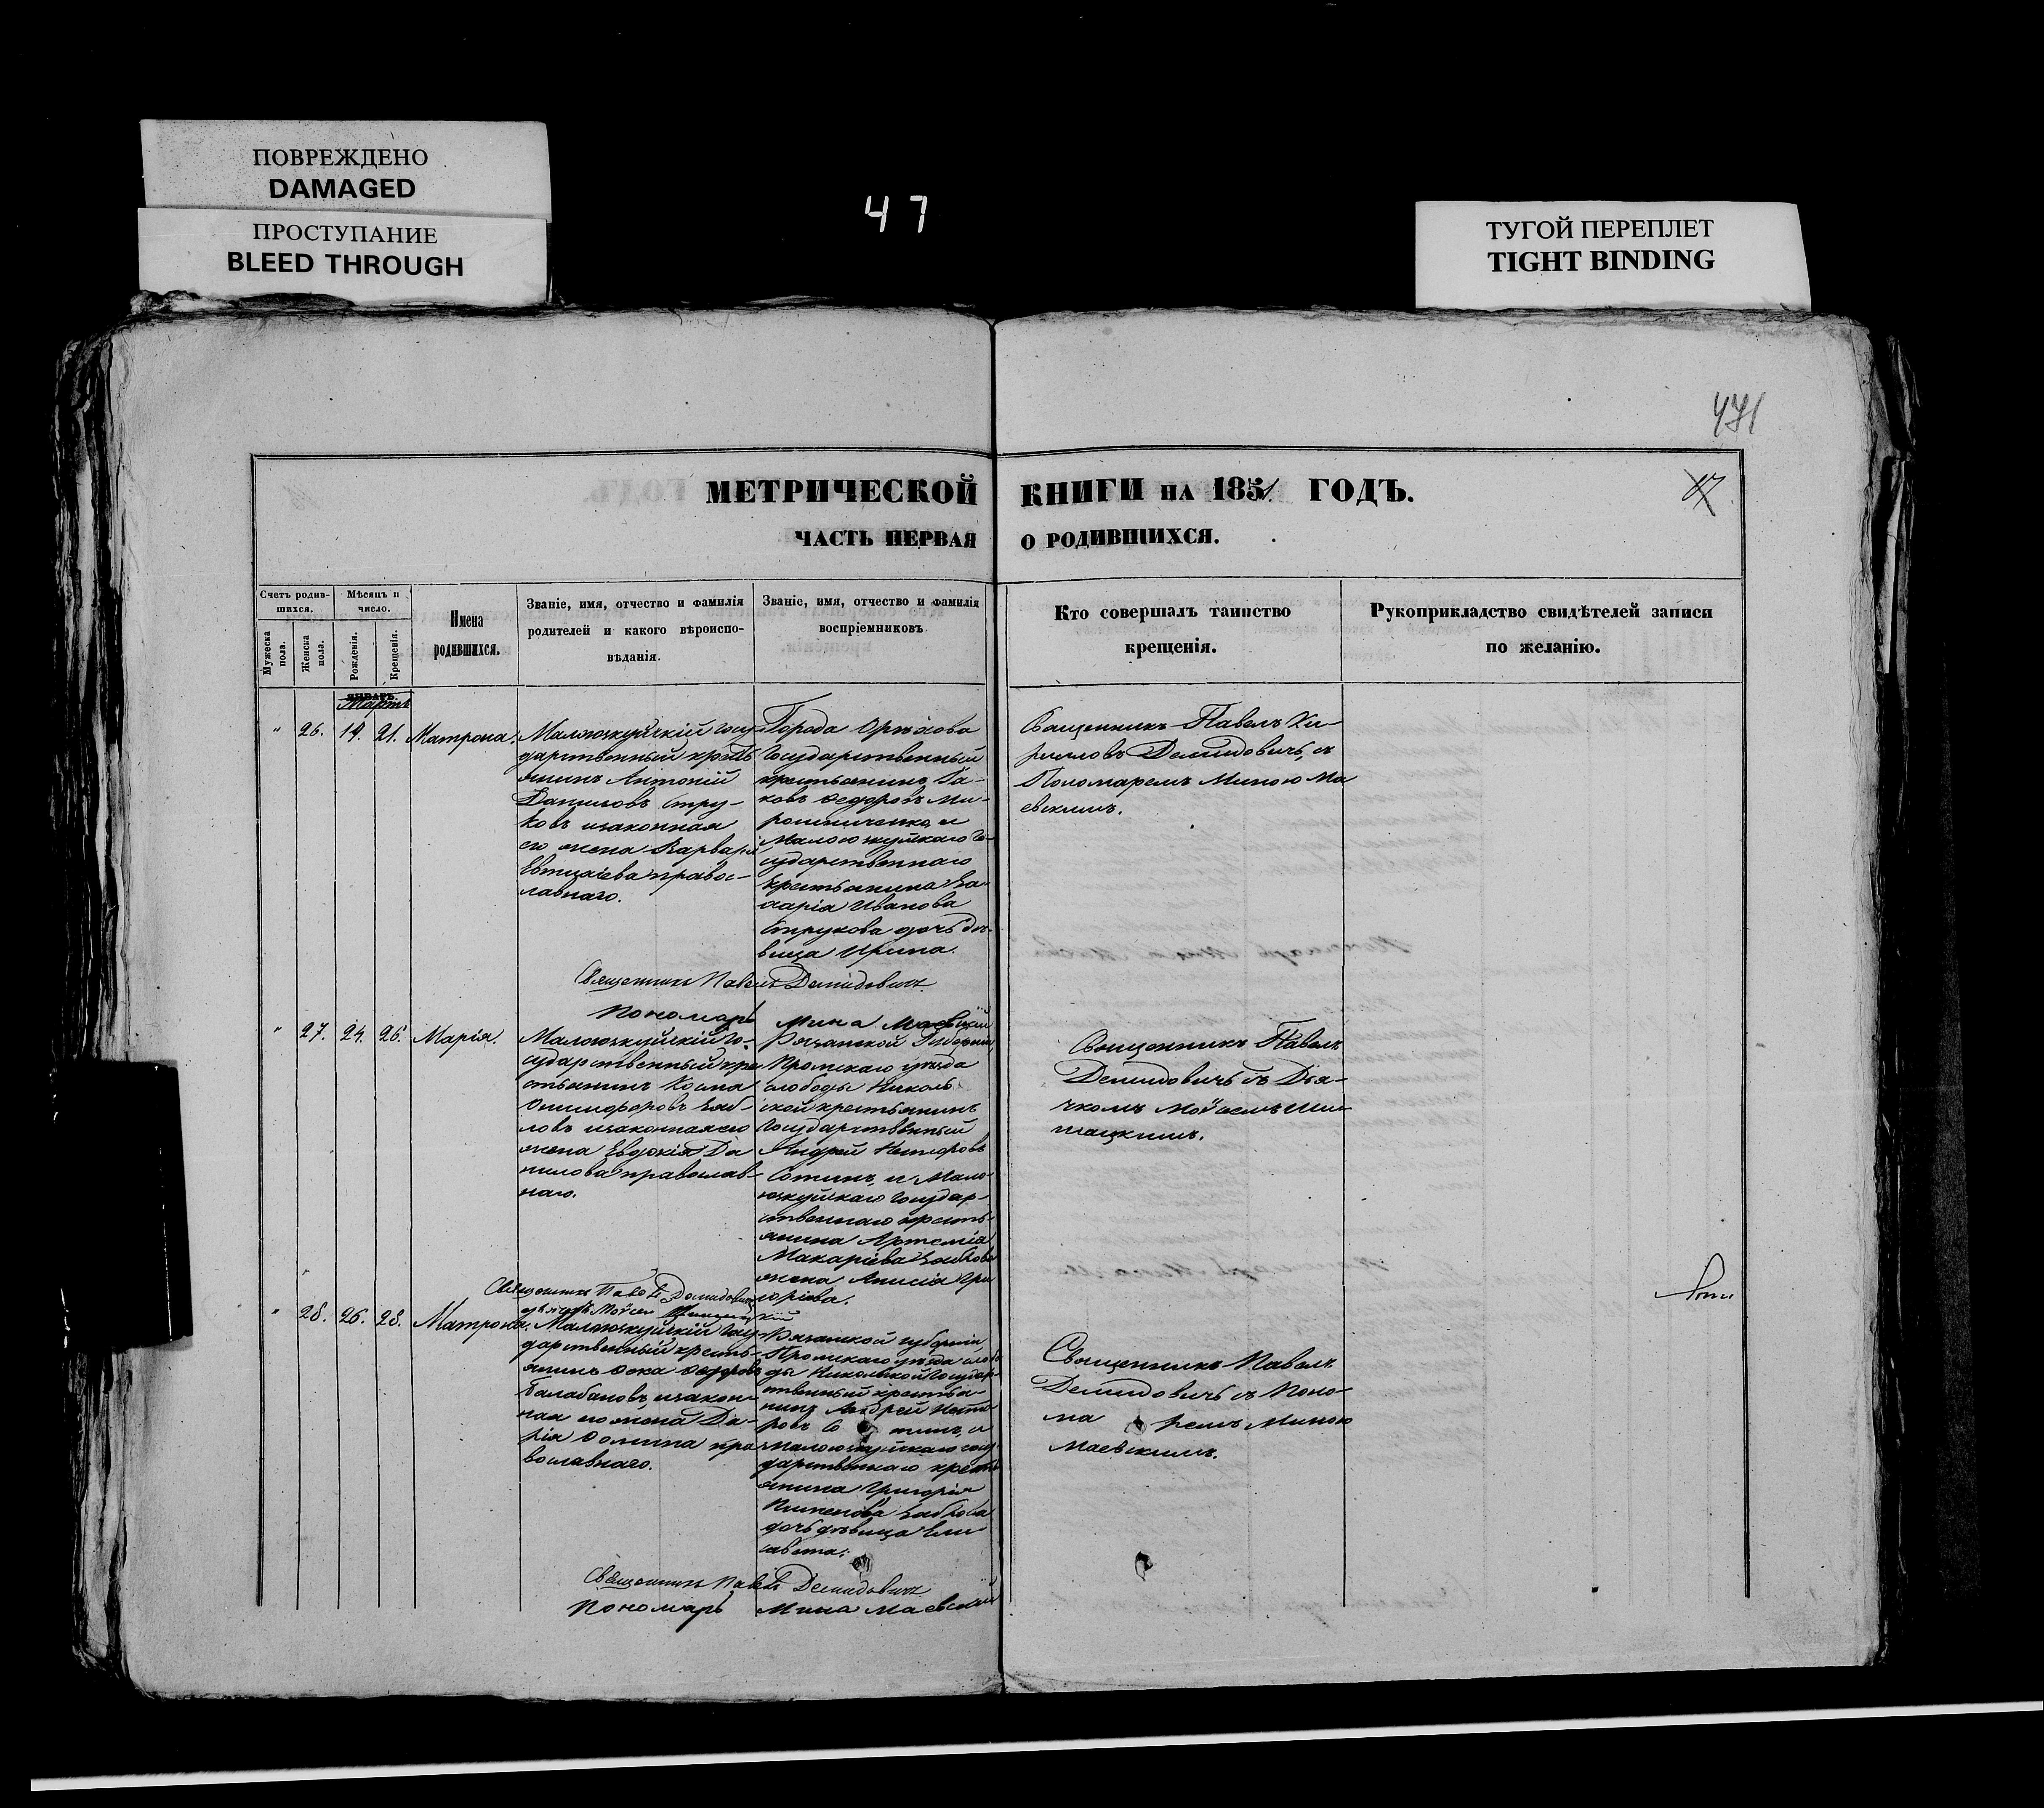 ПОВРЕЖДЕНО
DAMAGED
ПРОСТУПАНИЕ
BLEED THROUGH
47
ТУГОЙ ПЕРЕПЛЕТ
TIGHT BINDING
471
МЕТРИЧЕСКОЙ КНИГИ НА 1851 ГОДЪ.
17
ЧАСТЬ ПЕРВАЯ О РОДИВШИХСЯ.
Счетъ родив-
шихся.
Мужеска
пола.
Женска
пола.
Мѣсяцъ и
число.
Рожденія.
Крещенія.
Имена
родившихся.
Званіе, имя, отчество и фамилія
родителей и какого вѣроиспо-
вѣданія.
Званіе, имя, отчество и фамилія
воспріемниковъ.
Кто совершалъ таинство
крещенія.
Рукоприкладство свидѣтелей записи
по желанію.
ЯНВАРЬ.
Мартъ
" 26. 19. 21. Матрона.
Государ-
дарственный кресть
янинъ Антоній
Даниловъ Стру-
ковъ изаконная
его жена Варвара
православ-
лавнаго.
Города Орѣхова
Государственный
крестьянинъ Іа-
ковъ Федоровъ Ми-
рошниченко, и
сударственнаго
крестьянина За-
харія Иванова
Струкова дочь дѣ-
вица Ирина.
Священникъ Павелъ Ки-
рилловъ Демидовичь, съ
Пономаремъ Миною Ма
евскимъ.
Священникъ Павелъ Демидовичь
Пономарь Мина Маевскій
" 27. 24. 26. Марія.
сударственный кре
стьянинъ Косма
Онисифоровъ Зяб-
ловъ изаконная его
жена Евдокія Да
нилова православ-
наго.
Рязанской Губерніи,
Пронскаго уѣзда
слободы Николь-
ской крестьянинъ
Государственный
Андрей Несторовъ
Сотинъ, и Мало-
Государ-
ственнаго кресть-
янина Артемія
Макаріева
жена Анисія Гри
горіева.
Священникъ Павелъ
Демидовичь съ Дья-
чкомъ Моѵсеемъ Ши-
шацкимъ.
Священникъ Павелъ Демидовичь
" 28. 26. 28. Матрона.
дарственный кресть-
янинъ Фока Федоровъ
Балабановъ, изакон-
ная его жена Да-
рія Фомина пра
вославнаго.
Рязанской губерніи,
Пронскаго уѣзда слобо
ды Никольской Государ-
ственный крестья-
нинъ Андрей Несто
ровъ Сотинъ, и
дарственнаго кресть
янина Григорія
Пименова
дочь дѣвица Ели
савета.
Священникъ Павелъ
Демидовичь съ Поно-
маремъ Миною
Маевскимъ.
Священникъ Павелъ Демидовичь
Пономарь Мина Маевскій